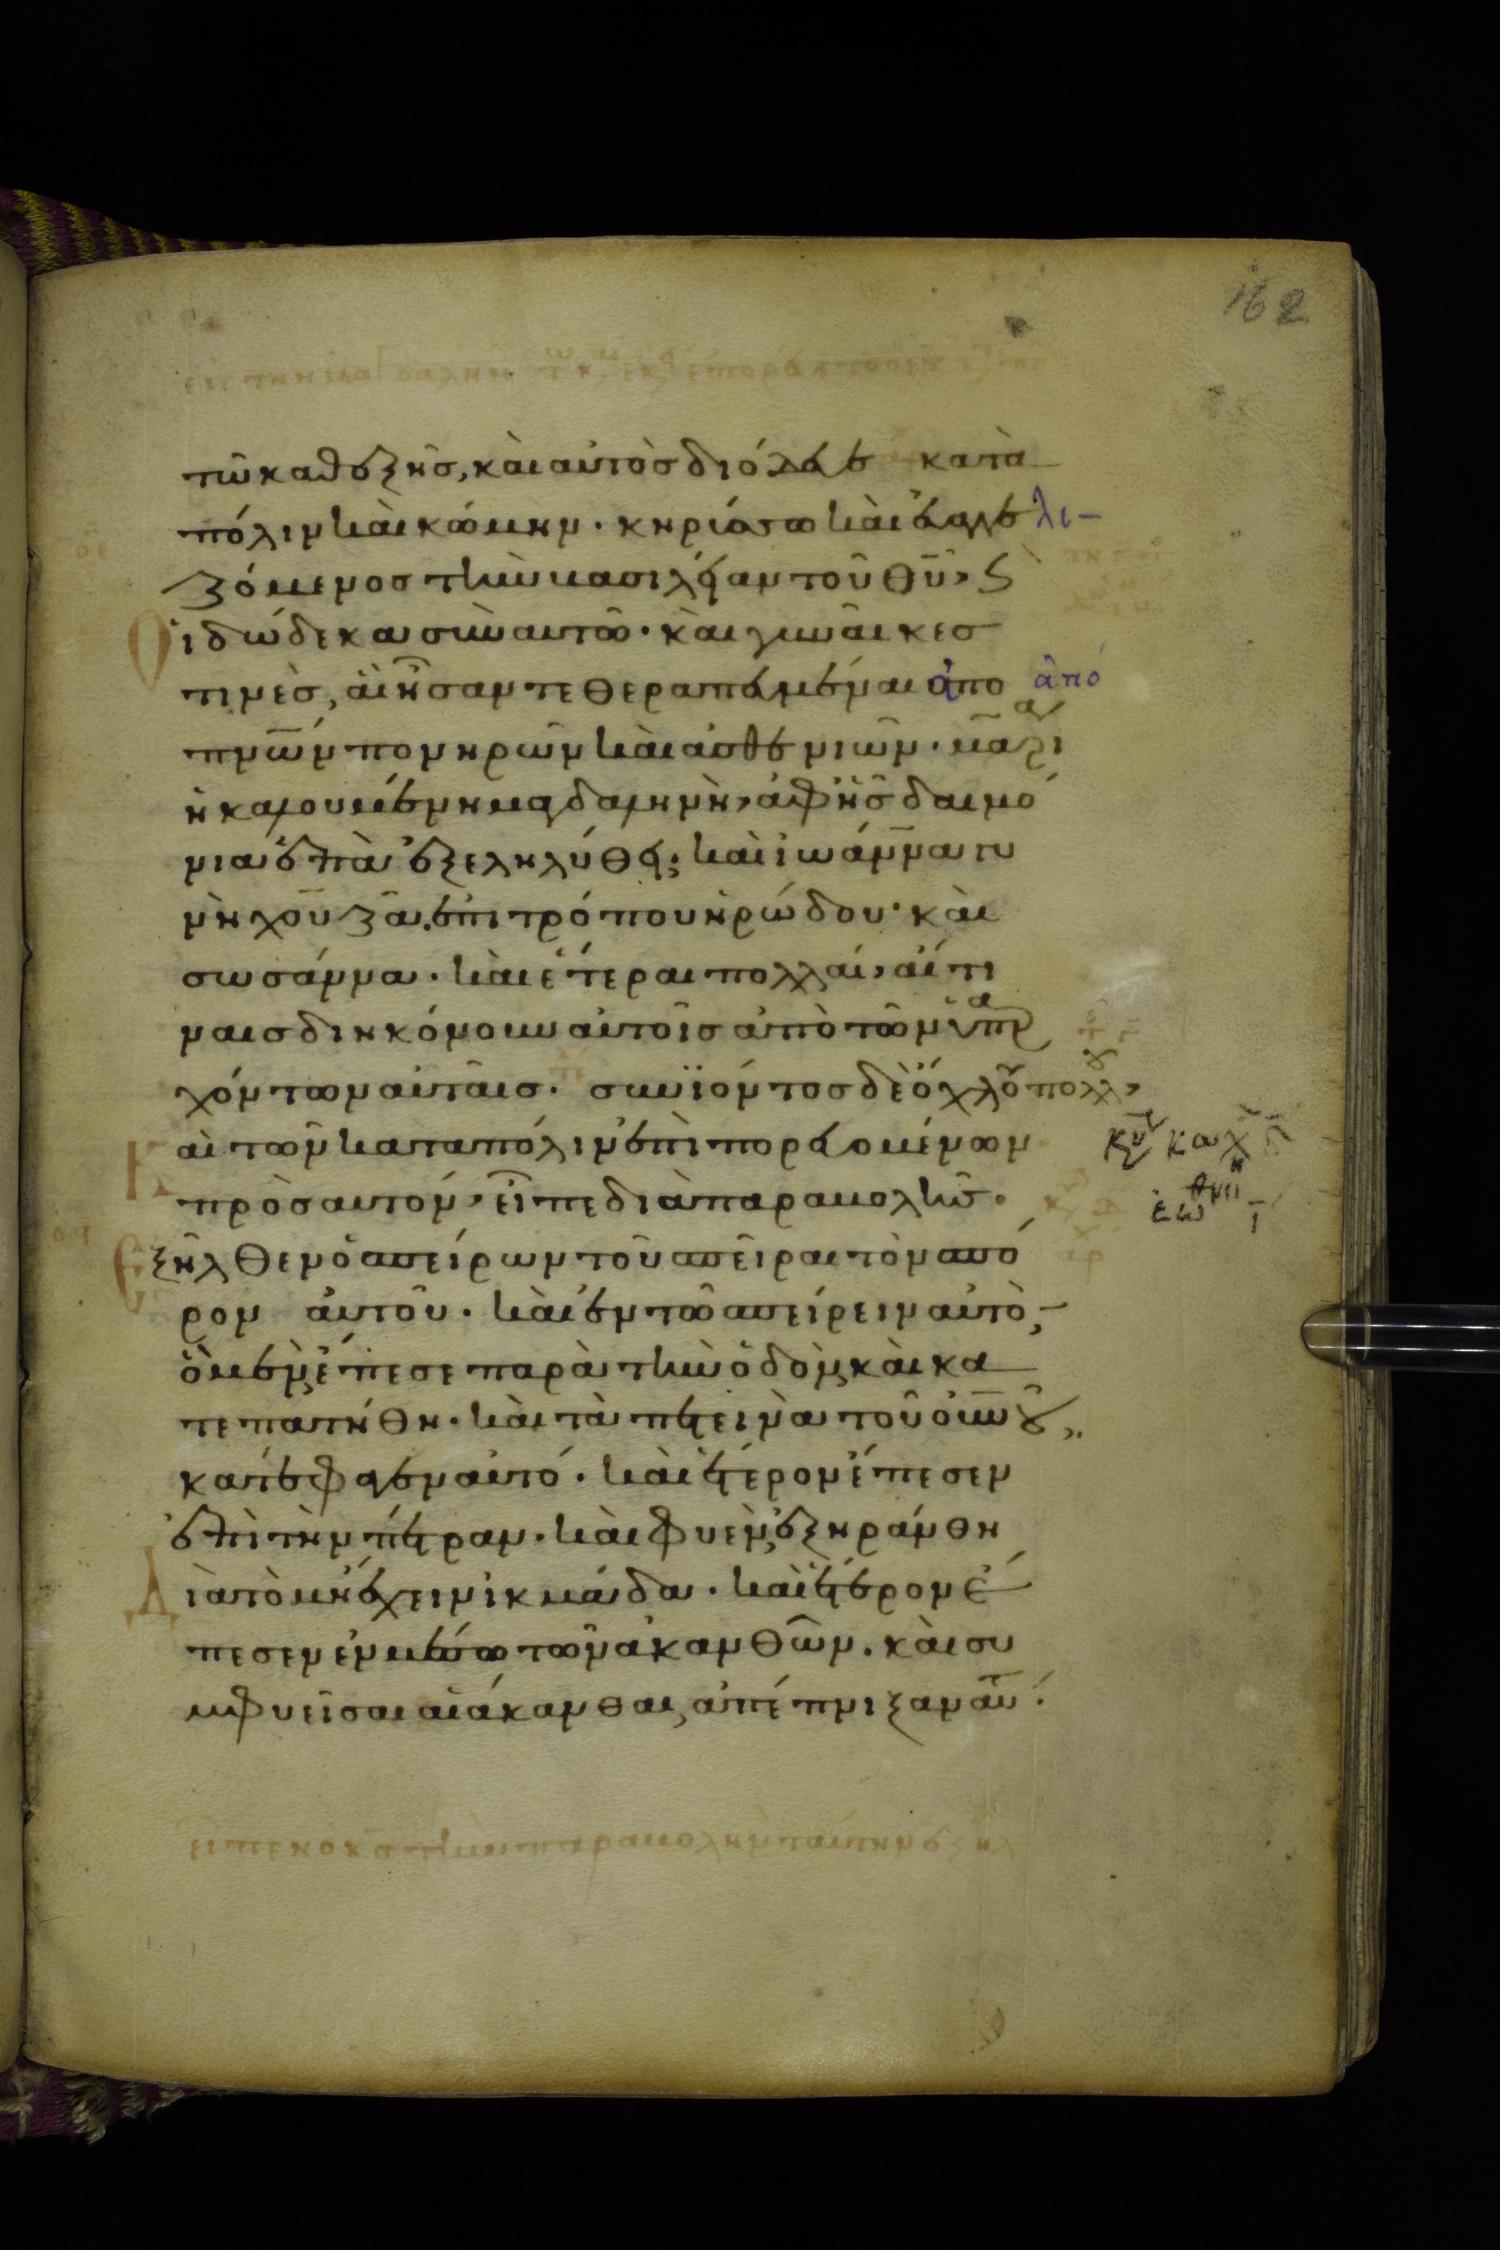 162
τῶ καθεξῆς, καὶ αὐτὸς διόδευε κατὰ
πόλιν καὶ κώμην. κηρύσσω καὶ εὐαγγε λι-
ζόμενος τὴν βασιλείαν τοῦ θῦ, ϛ
Οἱ δώδεκα σὺν αυτῶ. καὶ γυναῖκες
τινὲς, αἳ ἦσαν τεθεραπευμέναι απο ἀπό
πνων πονηρῶν καὶ ἀσθενιῶν. μαρί
ἡ καλουμένη μαγδαληνὴ, ἀφ ἧς δαιμό
νια ἑπτὰ ἐξεληλύθει, καὶ ἰωάννα γυ
νὴ χουζᾶ. ἐπιτρόπου ἡρώδου. καὶ
σωσάννα. καὶ ἕτεραι πολλαί, αἵτι
ναις διηκόνουν αὐτοῖς ἀπὸ τῶν ὑπαρ
χόντων αὐταῖς. συνϊόντος δὲ ὄχλου πολλου,
Καὶ τῶν κατα πόλιν ἐπιπορευομένων
πρὸς αυτον, εἶπε διὰ παραβολῆς.
Εξῆλθεν ὁ σπείρων τοῦ σπεῖραι τὸν σπό
ρον αὐτοῦ. καὶ ἐν τῶ σπείρειν αὐτὸ,
ὃ μὲν, ἔπεσε παρὰ τὴν ὁδὸν, καὶ κα
τεπατήθη. καὶ τὰ πετεινὰ τοῦ οὐνου,
κατέφαγεν αὐτό. καὶ ἕτερον ἔπεσεν
ἐπὶ τὴν πέτραν. καὶ φυὲν, ἐξηράνθη
Διὰ τὸ μὴ ἔχειν ἰκμάδα. καὶ ἕτερον ἔ
πεσεν ἐν μέσω τῶν ἀκανθῶν. καὶ συ
μφυεῖσαι αἱ ἄκανθαι, ἀπέπνιξαν αὐτό.
ειπεν ο κς την παραβολην ταύτην εξηλ